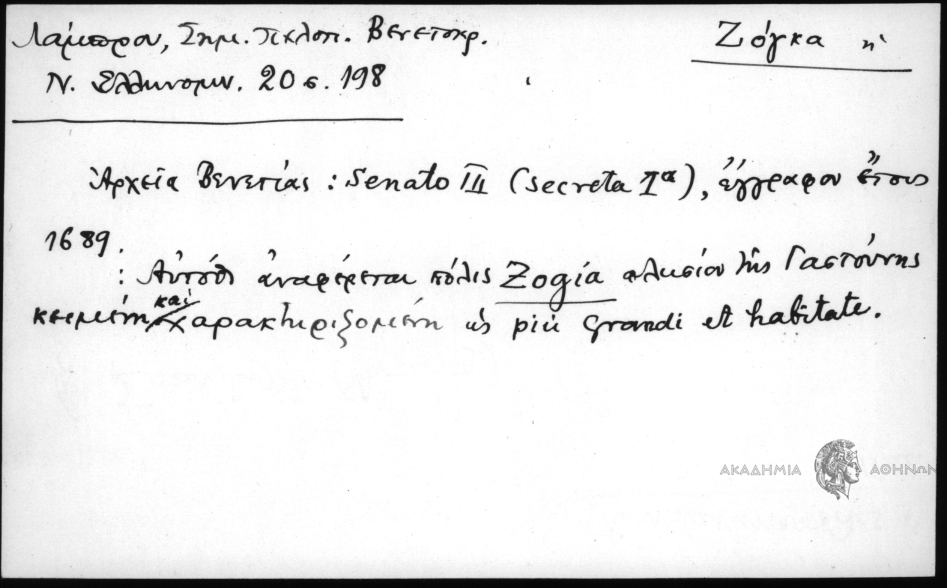 Λάμπρου, Σημ. Πελοπ. Βενετοκρ.
Ζόγκα η
Ν. Ἑλληνομν. 20 σ. 198
Ἀρχεῖα Βενετίας : Senato III (secreta Iª), ἔγγραφον ἔτους
1689.
: Αὐτόθι ἀναφέρεται πόλις Zogía πλησίον τῆς Γαστούνης
κειμένη καὶ χαρακτηριζομένη ὡς più grandi et habitate.
ΑΚΑΔΗΜΙΑ ΑΘΗΝΩΝ